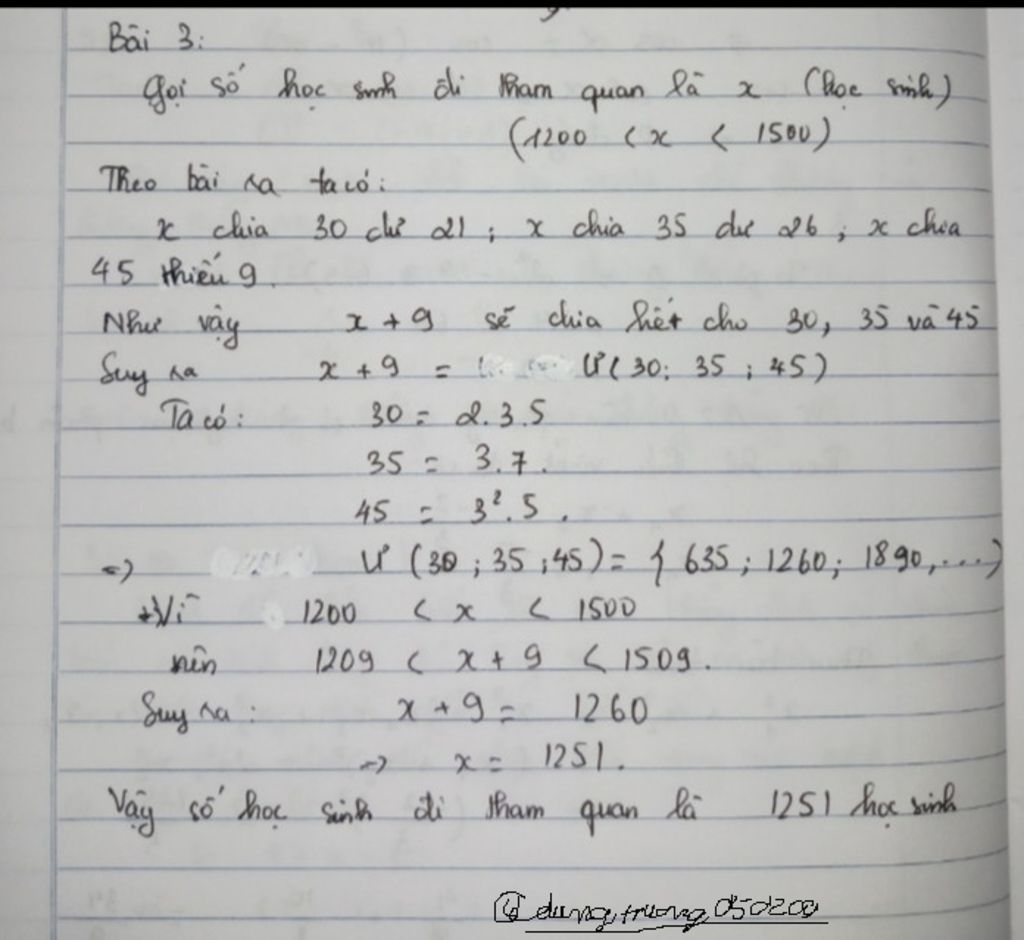 Bài 3:
Gọi số học sinh đi tham quan là x (học sinh)
(1200 < x < 1500)
Theo bài ra ta có:
x chia 30 dư 21 ; x chia 35 dư 26 ; x chia
45 thiếu 9.
Như vậy x + 9 sẽ chia hết cho 30, 35 và 45
Suy ra x + 9 = Ư(30; 35 ; 45)
Ta có: 30 = 2.3.5
35 = 3.7.
45 = 3².5.
=> Ư (30 ; 35 ; 45) = { 635 ; 1260 ; 1890, ....}
+Vì 1200 < x < 1500
nên 1209 < x + 9 < 1509.
Suy ra: x + 9 = 1260
=> x = 1251.
Vậy số học sinh đi tham quan là 1251 học sinh
@dungtruong050200